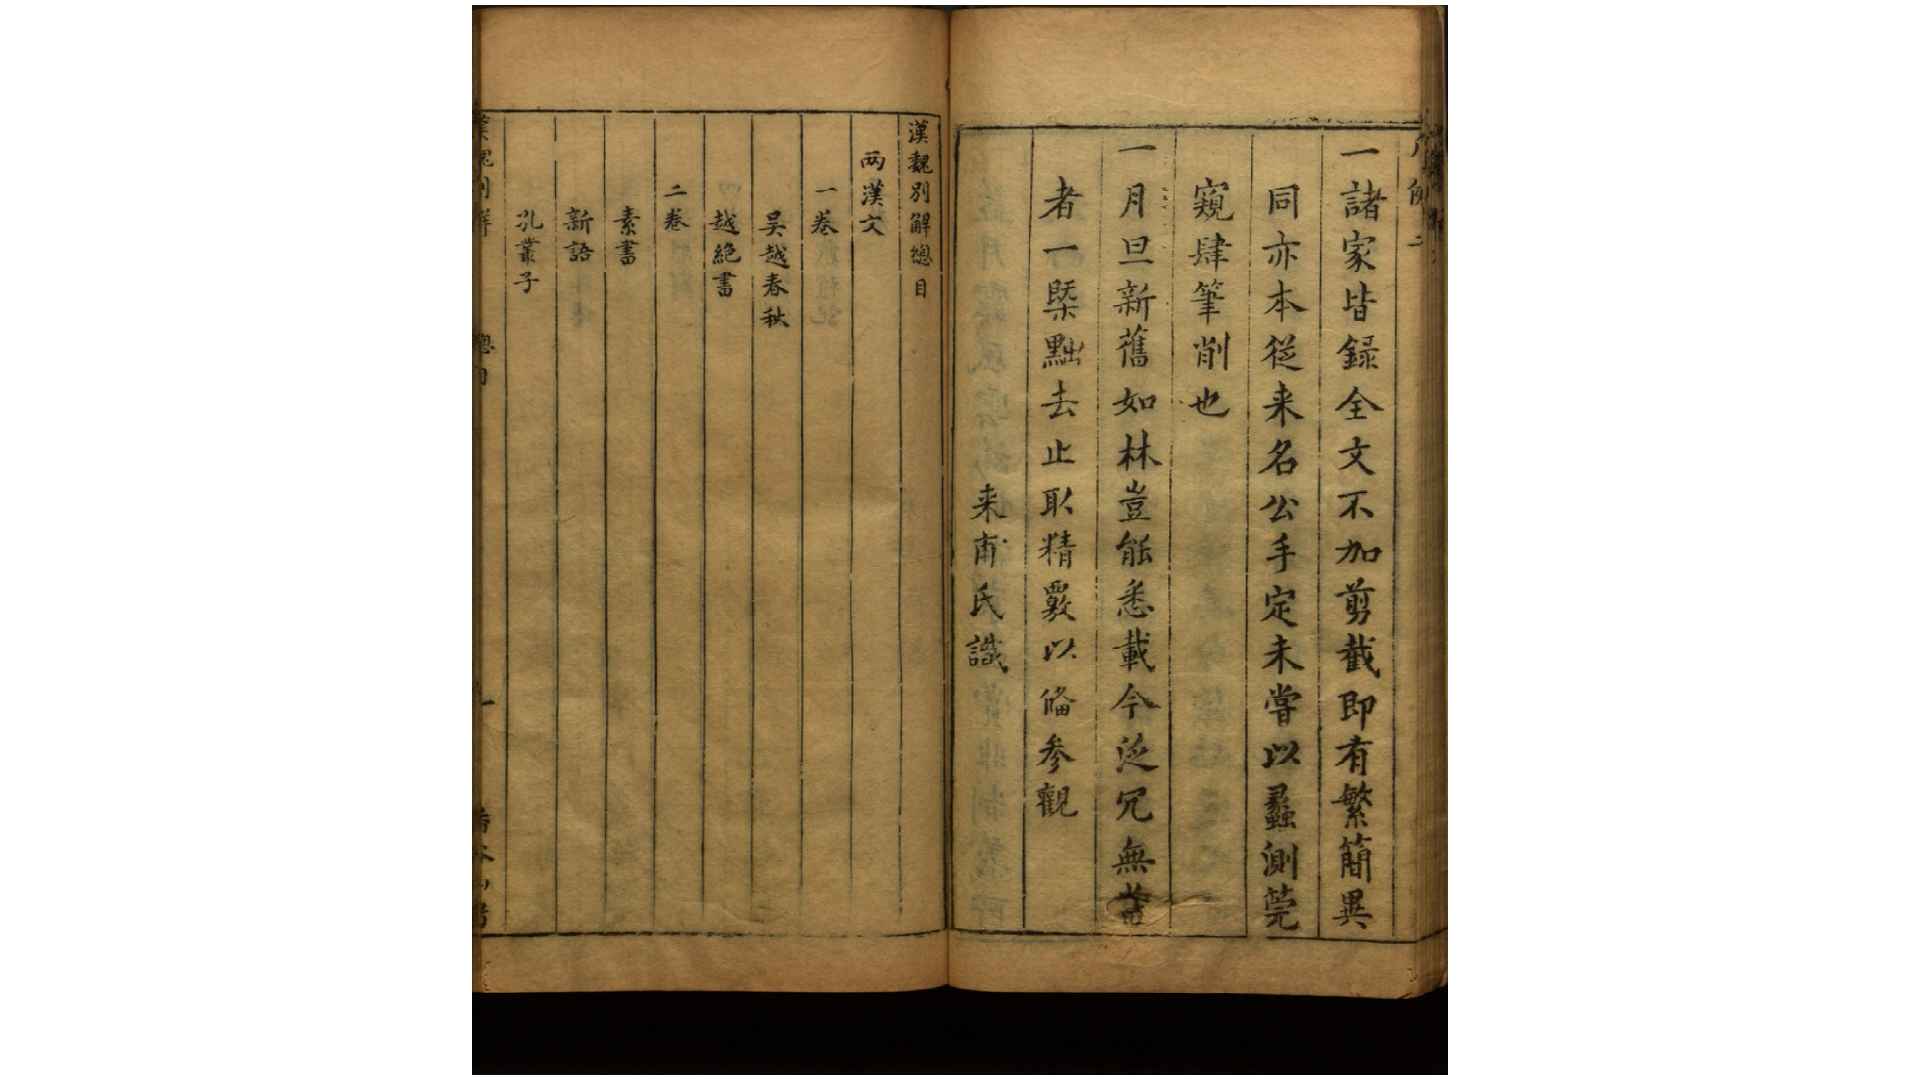 一諸家皆録全文不加剪截即有繁簡異
同亦本從来名公手定未嘗以蠡測筦
窺肆筆削也
一月旦新舊如林豈能悉載今泛冗無當
者一槩黜去止取精覈以俻參觀
来甫氏識
漢魏別解總目
两漢文
一卷
吴越春秋
越絶書
二卷
素書
新語
孔叢子